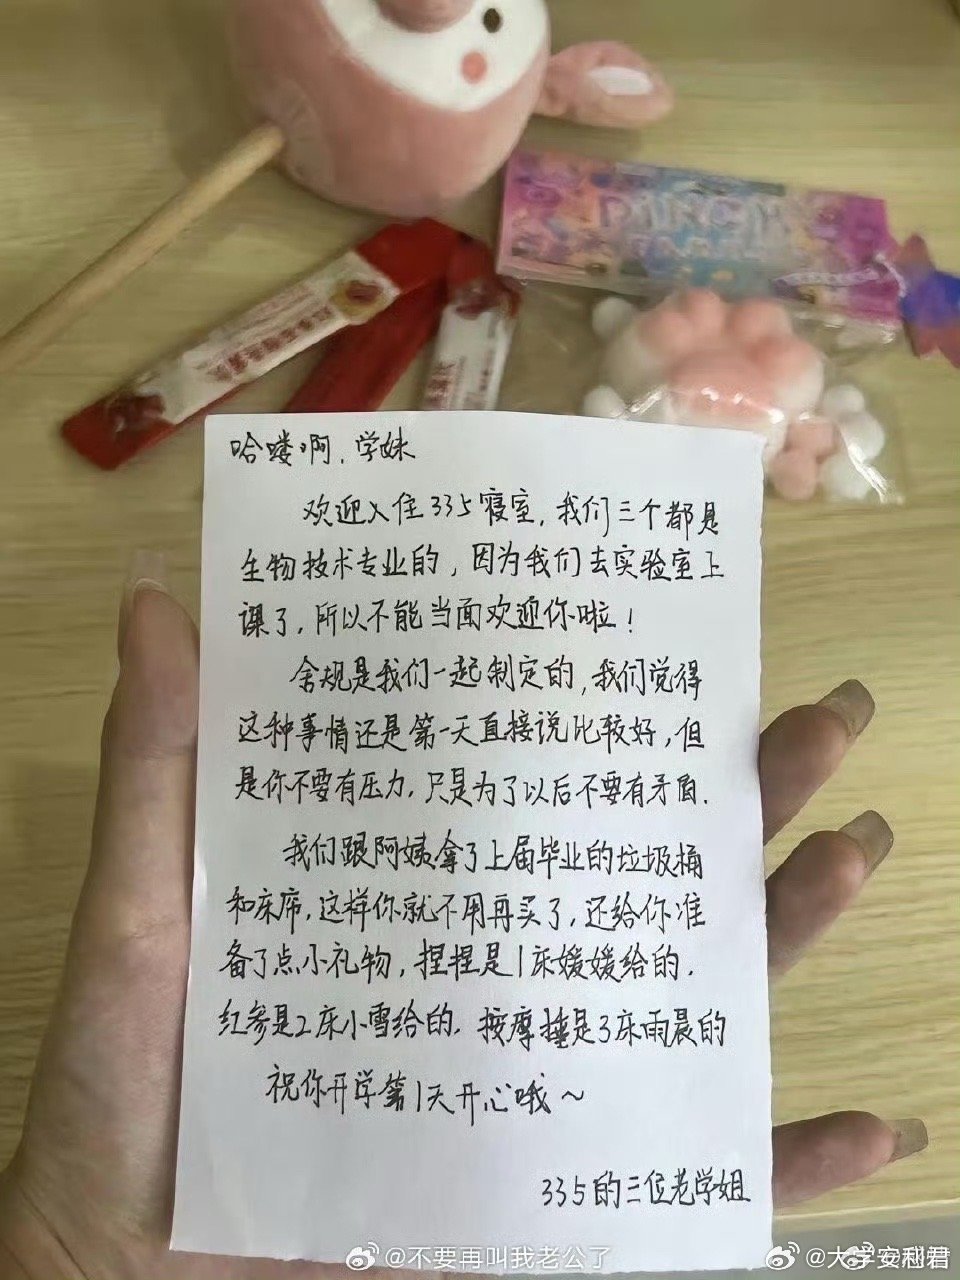 哈喽啊，学妹
欢迎入住335寝室，我们三个都是
生物技术专业的，因为我们去实验室上
课了，所以不能当面欢迎你啦！
舍规是我们一起制定的，我们觉得
这种事情还是第一天直接说比较好，但
是你不要有压力，只是为了以后不要有矛盾.
我们跟阿姨拿了上届毕业的垃圾桶
和床席，这样你就不用再买了，还给你准
备了点小礼物，捏捏是1床媛媛给的.
红参是2床小雪给的.按摩捶是3床雨晨的
祝你开学第1天开心哦~
335的三位老学姐
@不要再叫我老公了
@大学安利君